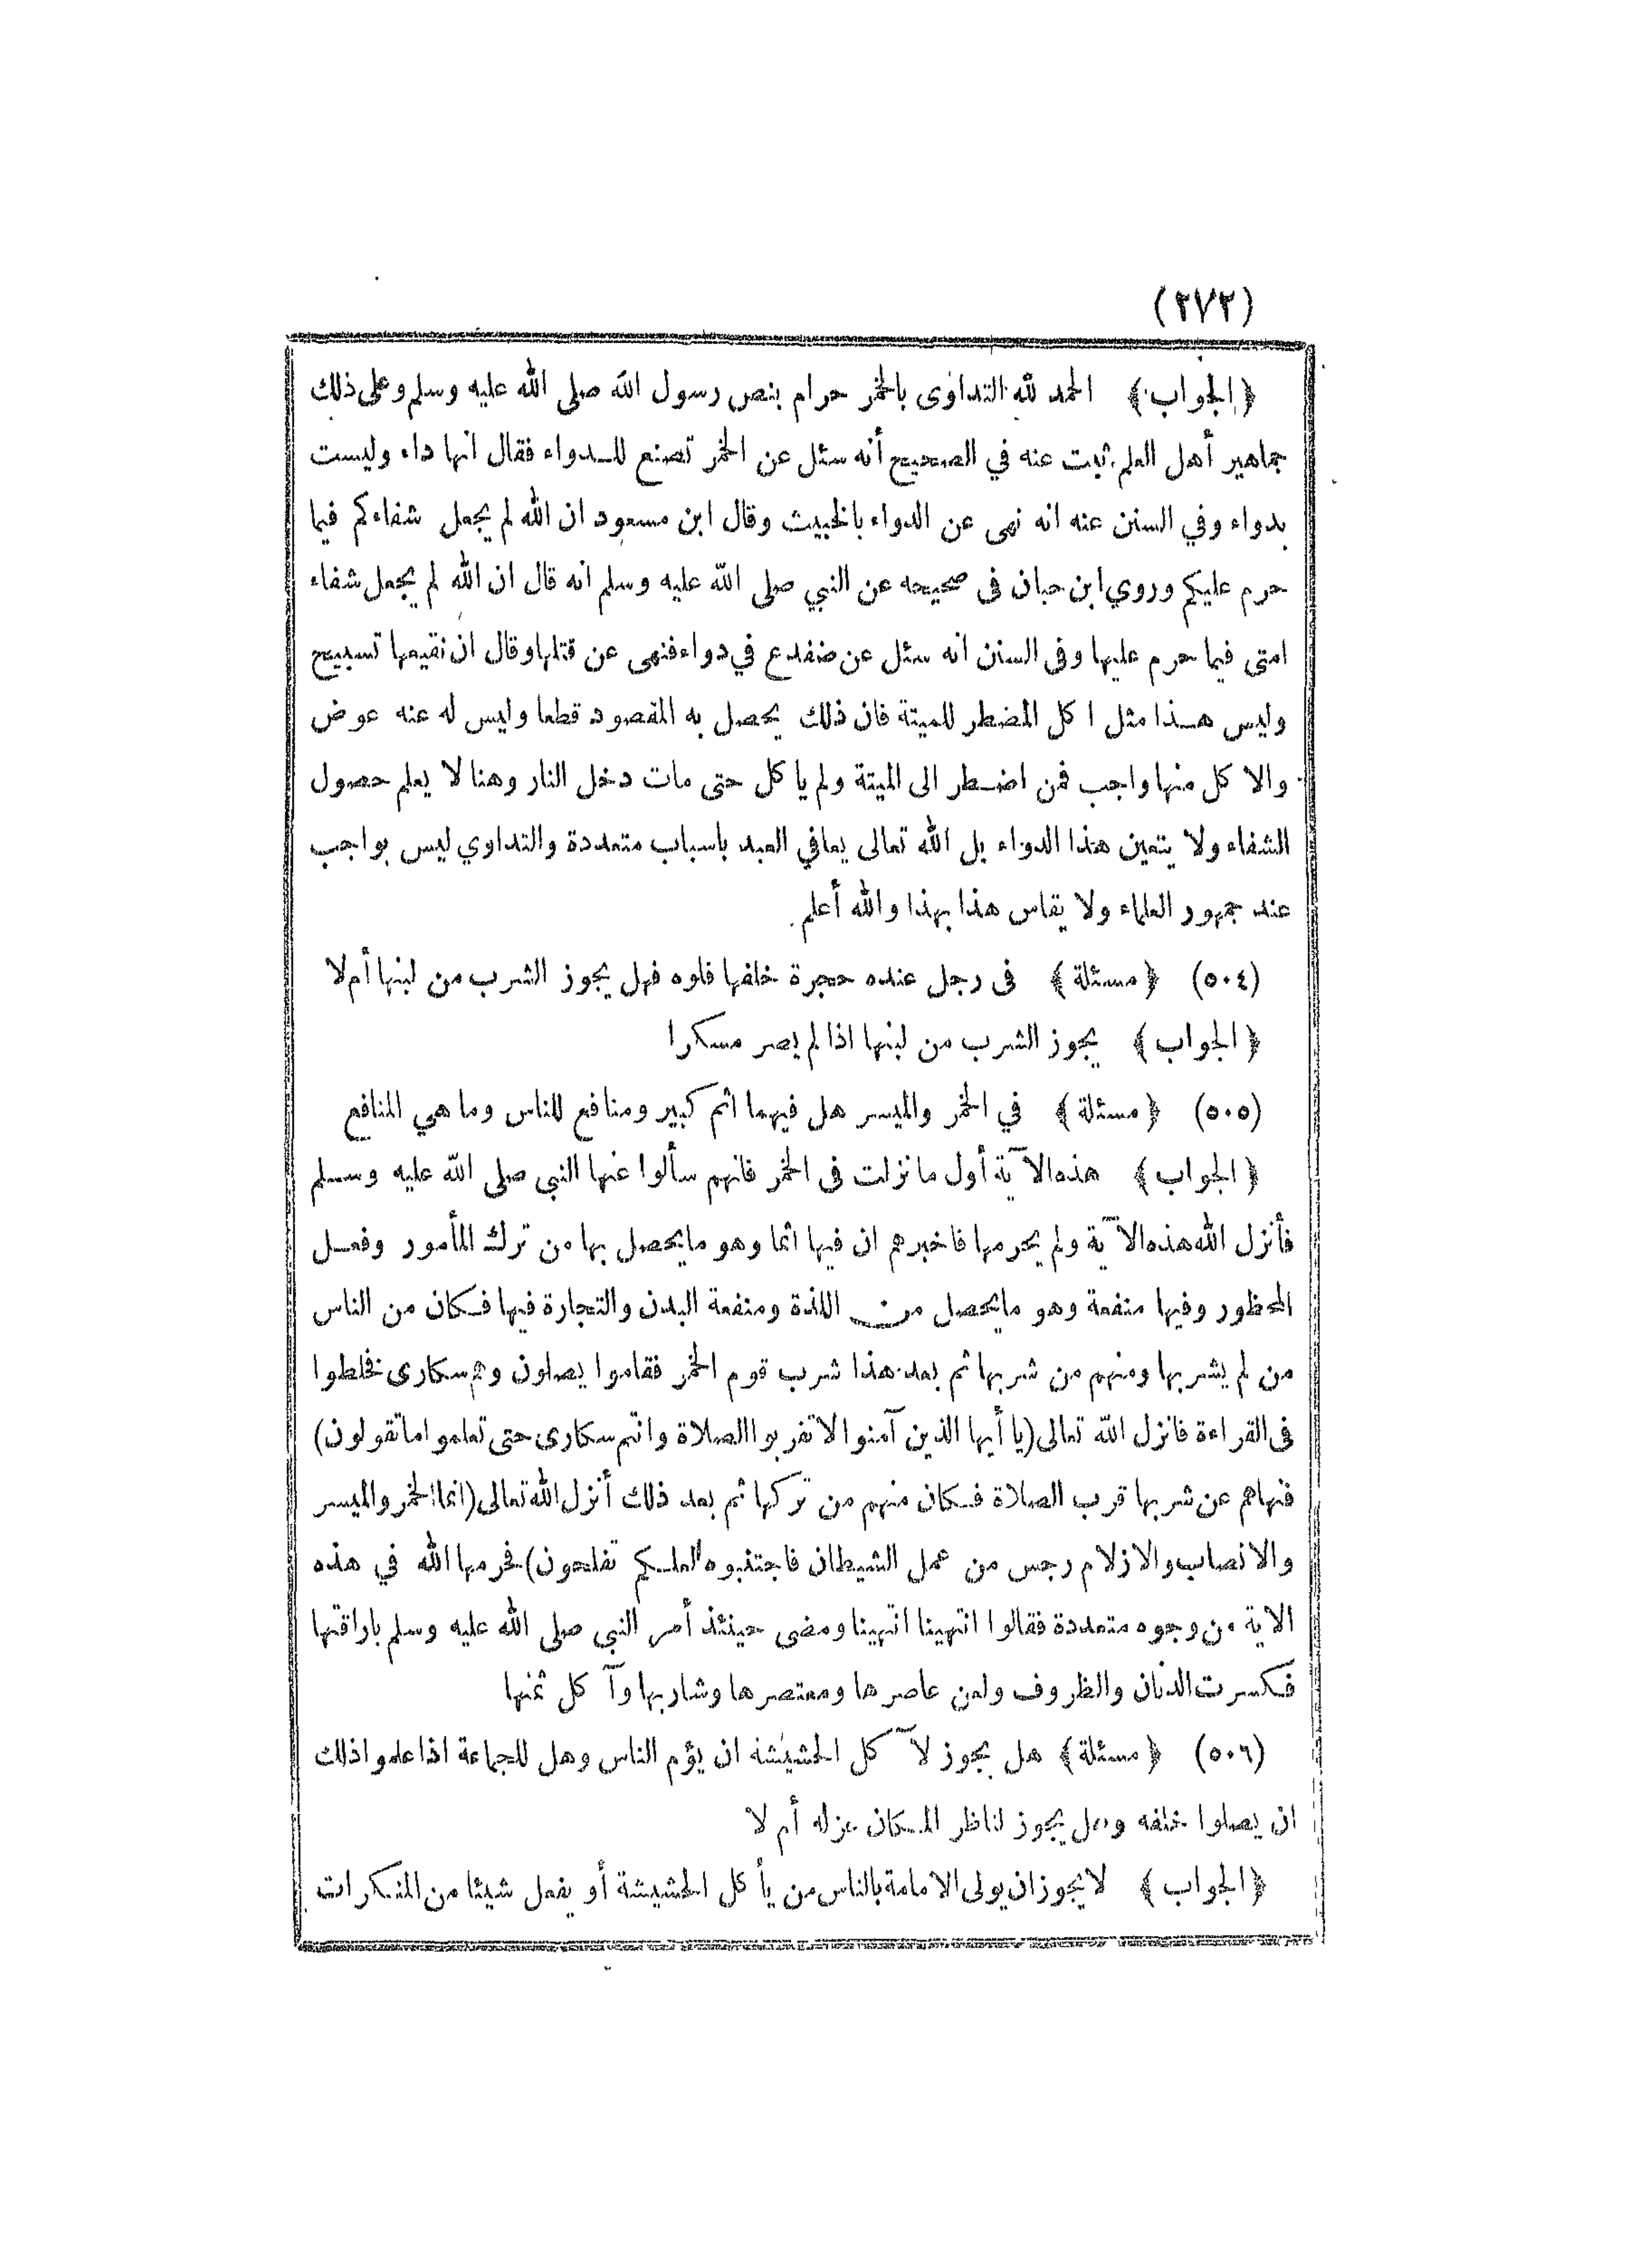 (٢٧٢)
﴿الجواب﴾ الحمد لله التداوى بالخمر حرام بنص رسول الله صلى الله عليه وسلم وعلى ذلك
جماهير أهل العلم ثبت عنه في الصحيح أنه سئل عن الخمر تصنع للدواء فقال انها داء وليست
بدواء وفي السنن عنه انه نهى عن الدواء بالخبيث وقال ابن مسعود ان الله لم يجعل شفاءكم فيما
حرم عليكم وروي ابن حبان فى صحيحه عن النبي صلى الله عليه وسلم انه قال ان الله لم يجعل شفاء
امتى فيما حرم عليها وفى السنن انه سئل عن ضفدع في دواء فنهى عن قتلها وقال ان نقيعها تسبيح
وليس هذا مثل اكل المضطر للميتة فان ذلك يحصل به المقصود قطعا وليس له عنه عوض
والاكل منها واجب فمن اضطر الى الميتة ولم ياكل حتى مات دخل النار وهنا لا يعلم حصول
الشفاء ولا يتعين هذا الدواء بل الله تعالى يعافي العبد باسباب متعددة والتداوي ليس بواجب
عند جمهور العلماء ولا يقاس هذا بهذا والله أعلم.
(٥٠٤) ﴿مسئلة﴾ فى رجل عنده حجرة خلفها فلوه فهل يجوز الشرب من لبنها أم لا
﴿الجواب﴾ يجوز الشرب من لبنها اذا لم يصر مسكرا
(٥٠٥) ﴿مسئلة﴾ في الخمر والميسر هل فيهما اثم كبير ومنافع للناس وما هي المنافع
﴿الجواب﴾ هذه الآية أول ما نزلت فى الخمر فانهم سألوا عنها النبى صلى الله عليه وسلم
فأنزل الله هذه الآية ولم يحرمها فاخبرهم ان فيها اثما وهو ما يحصل بها من ترك المأمور وفعل
المحظور وفيها منفعة وهو ما يحصل من اللذة ومنفعة البدن والتجارة فيها فكان من الناس
من لم يشربها ومنهم من شربها ثم بعد هذا شرب قوم الخمر فقاموا يصلون وهم سكارى فخلطوا
فى القراءة فانزل الله تعالى (يا أيها الذين آمنوا لا تقربوا الصلاة وانتم سكارى حتى تعلموا ما تقولون)
فنهاهم عن شربها قرب الصلاة فكان منهم من تركها ثم بعد ذلك أنزل الله تعالى (انما الخمر والميسر
والانصاب والازلام رجس من عمل الشيطان فاجتنبوه لعلكم تفلحون) فحرمها الله في هذه
الاية من وجوه متعددة فقالوا انتهينا انتهينا ومضى حينئذ أمر النبى صلى الله عليه وسلم باراقتها
فكسرت الدنان والظروف ولعن عاصرها ومعتصرها وشاربها وآكل ثمنها
(٥٠٦) ﴿مسئلة﴾ هل يجوز لآكل الحشيشة ان يؤم الناس وهل للجماعة اذا علموا ذلك
ان يصلوا خلفه وهل يجوز لناظر المكان عزله أم لا
﴿الجواب﴾ لا يجوز ان يولى الامامة بالناس من يأكل الحشيشة أو يفعل شيئا من المنكرات